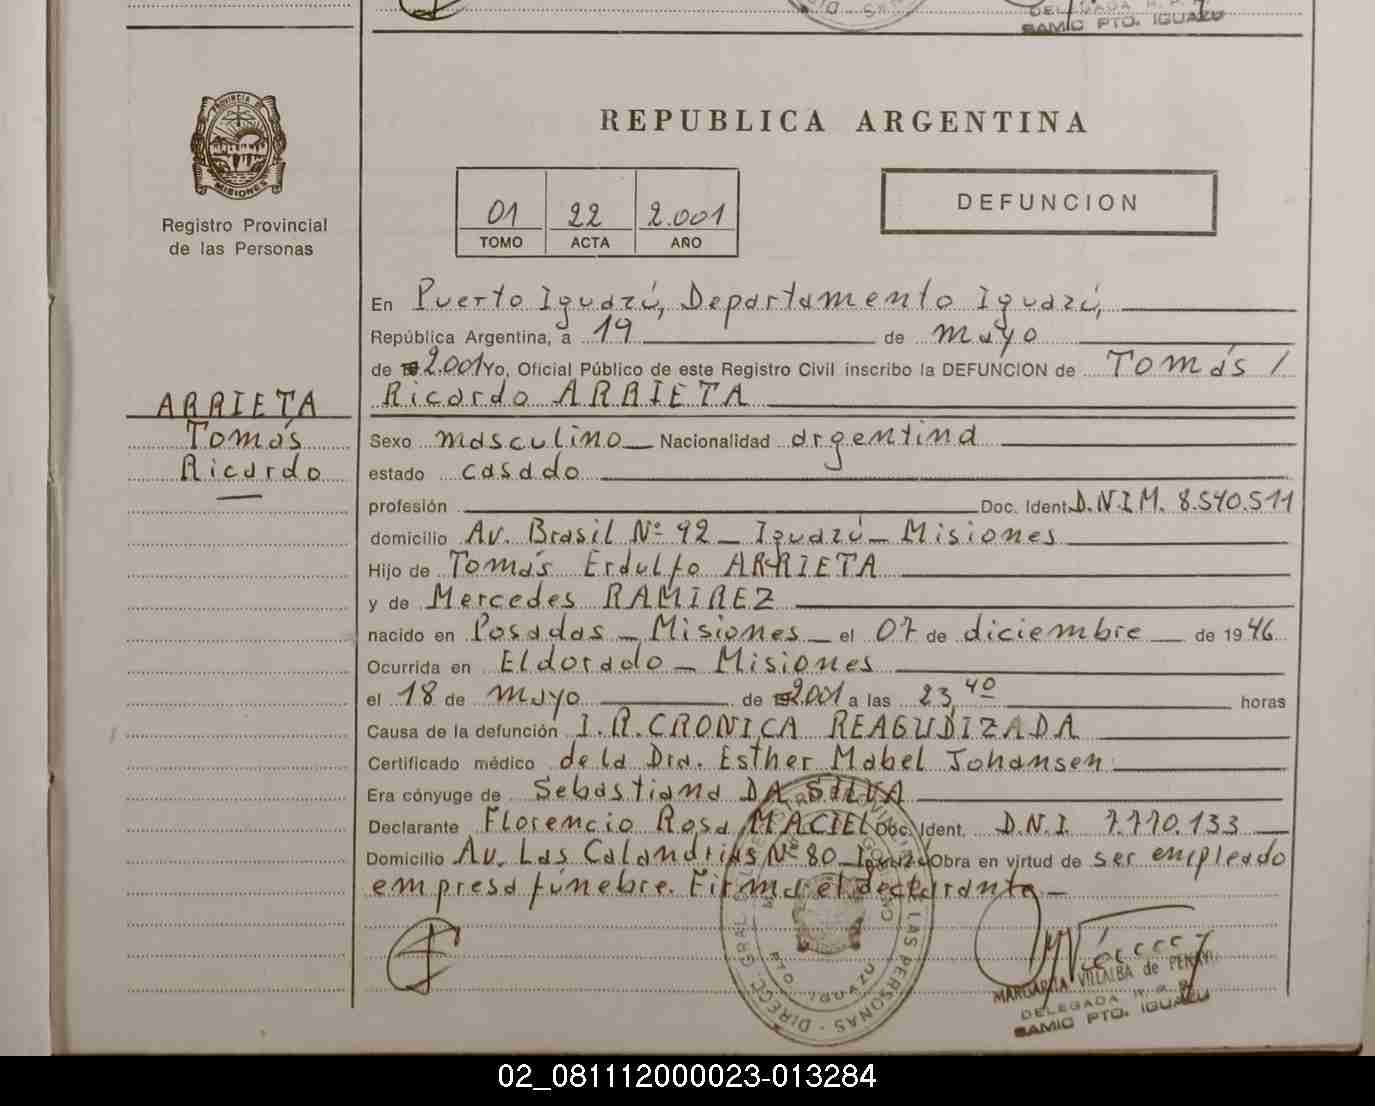 DELEGADA R. P.
SAMIC PTO. IGUAZU
PROVINCIA DE
MISIONES
Registro Provincial
de las Personas
REPUBLICA ARGENTINA
01 22 2.001
TOMO ACTA AÑO
DEFUNCION
En Puerto Iguazú, Departamento Iguazú,
República Argentina, a 19 de mayo
de 2.001 Yo, Oficial Público de este Registro Civil inscribo la DEFUNCION de Tomás /
Ricardo ARRIETA
ARRIETA
Tomás
Ricardo
Sexo masculino Nacionalidad argentina
estado casado
profesión Doc. Ident. D.N.I.M. 8.540.511
domicilio Av. Brasil Nº 92 - Iguazú - Misiones
Hijo de Tomás Erdulfo ARRIETA
y de Mercedes RAMIREZ
nacido en Posadas - Misiones - el 07 de diciembre de 1946
Ocurrida en Eldorado - Misiones
el 18 de mayo de 2001 a las 23,40 horas
Causa de la defunción I.R.CRONICA REAGUDIZADA
Certificado médico de la Dra. Esther Mabel Johansen
Era cónyuge de Sebastiana DA SILVA
Declarante Florencio Rosa MACIEL Doc. Ident. D.N.I. 7.770.133
Domicilio Av. Las Calandrias Nº 80 - Iguazú Obra en virtud de ser empleado
empresa fúnebre. Firma el declarante -
DIREC. GRAL. LAS PERSONAS
PTO. IGUAZU
MARGARITA VILLALBA de
DELEGADA R. P.
SAMIC PTO. IGUAZU
02_081112000023-013284